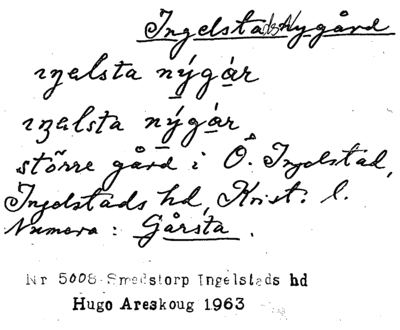 Ingelstads Nygård
ıŋelsta nýgår
ıŋelsta nýgår
större gård i Ö. Ingelstad,
Ingelstads hd, Krist. l.
Numera: Gårsta.
Nr 5008 Smedstorp Ingelstads hd
Hugo Areskoug 1963